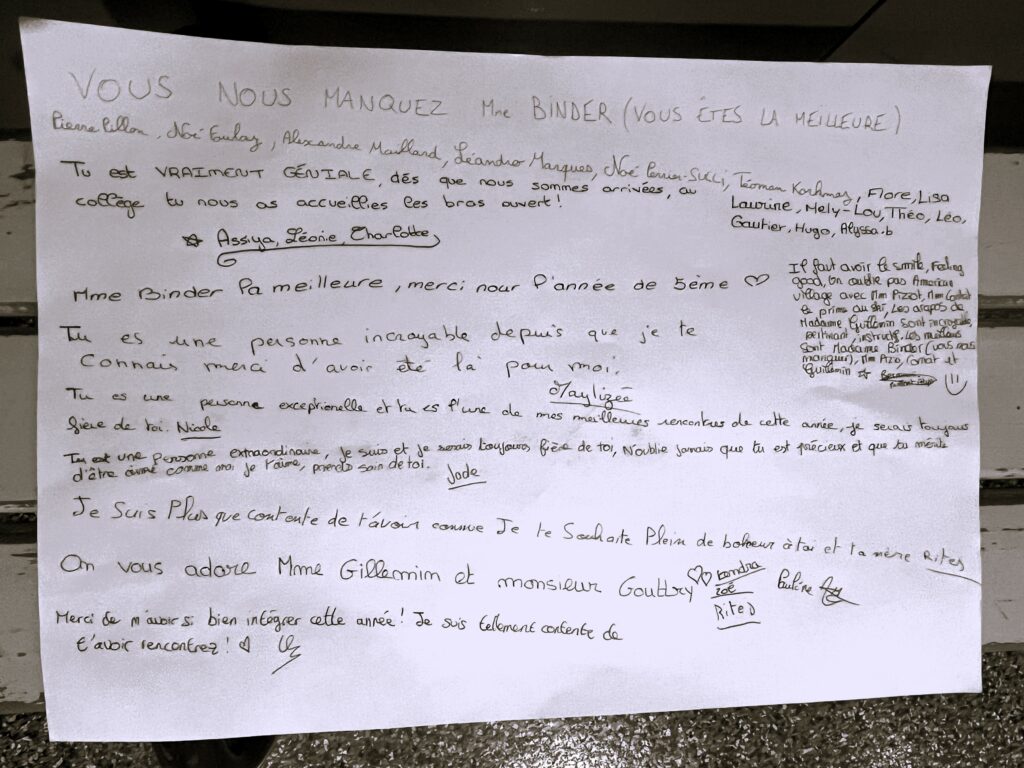 VOUS NOUS MANQUEZ Mme BINDER (VOUS ÊTES LA MEILLEURE)
Pierre Pillon, Noé, Alexandre Maillard, Léandro Marques, Noé Perrier-Succi, Teoman Korkmaz, Flore, Lisa
Laurine, Mely-Lou, Théo, Léo,
Gautier, Hugo, Alyssa.b
Tu est VRAIMENT GÉNIALE, dés que nous sommes arrivées, au
collège tu nous as accueillies les bras ouvert!
Assiya, Léonie, Charlotte
Mme Binder la meilleure, merci pour l'année de 5ème ♡
Il faut avoir le smile, Feeling
good, On oublie pas American
village avec Mm Pizzot, Mm
la prime au ski, Les arapos de
Madame Guillemin sont incroyable,
pertinant, instructif, Les meilleurs
sont Madame Binder (vous nous
manquer), Mm, et
Guillemin ☆
Tu es une personne incroyable depuis que je te
Connais merci d'avoir été là pour moi.
Maylizée
Tu es une personne exceptionelle et tu es l'une de mes meilleures rencontres de cette année, je serais toujours
fière de toi. Nicole
Tu est une personne extraordinaire, je suis et je serais toujours fière de toi, N'oublie jamais que tu est précieux et que tu mérite
d'être aimé comme moi je t'aime, prends soin de toi. Jade
Je Suis Plus que contente de t'avoir connue Je te Souhaite Plein de à toi et ta mère Rites
On vous adore Mme Gillemim et monsieur Gouttry ♡♡ Kendra
zoé
Rites
Pauline
Merci de m'avoir si bien intégrer cette année! Je suis tellement contente de
t'avoir rencontrez! ♡